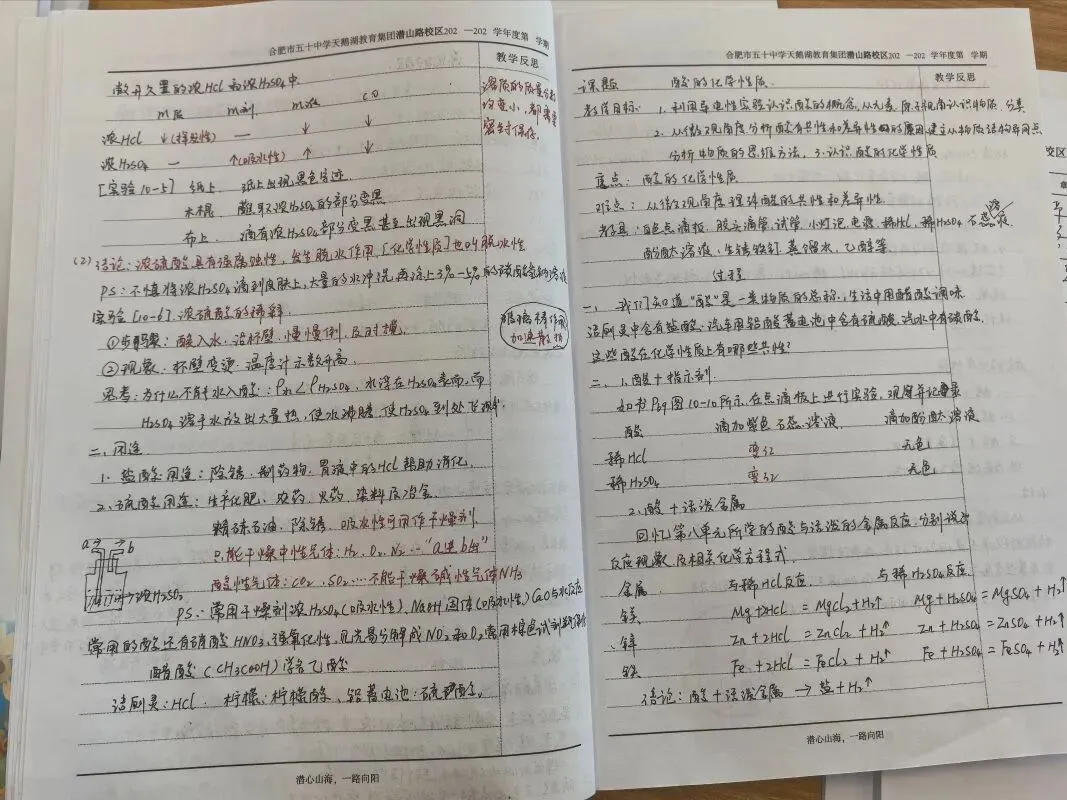 合肥市五十中学天鹅湖教育集团潜山路校区202 —202 学年度第 学期
教学反思
敞开久置的浓HCl和浓H₂SO₄中
m质 m剂 m液 c%
浓HCl ↓(挥发性) — ↓ ↓
浓H₂SO₄ — ↑(吸水性) ↑ ↓
溶质的质量分数
均变小,都需要
密封保存.
[实验10-5] 纸上 纸上出现黑色字迹.
木棍 蘸有浓H₂SO₄的部分变黑
布上. 滴有浓H₂SO₄部分变黑甚至出现黑洞
(2) 结论:浓硫酸具有强腐蚀性,发生脱水作用[化学性质]也叫脱水性
PS:不慎将浓H₂SO₄滴到皮肤上,大量的水冲洗,再涂上3%—5%的碳酸氢钠溶液
实验[10-6].浓硫酸的稀释
①步骤:酸入水,沿杯壁,慢慢倒,及时搅.
②现象.杯壁变烫.温度计示数升高.
玻璃棒作用
加速散热
思考:为什么不能水入酸:ρ水<ρH₂SO₄,水浮在H₂SO₄表面,而
H₂SO₄溶于水放出大量热,使水沸腾,使H₂SO₄到处飞溅.
二、用途
1. 盐酸用途:除锈.制药物.胃液中的HCl帮助消化.
2. 硫酸用途:生产化肥、农药、火药、染料及冶金.
精炼石油、除锈、吸水性可用作干燥剂.
只能干燥中性气体:H₂、O₂、N₂… "a进b出"
酸性气体:CO₂、SO₂…不能干燥碱性气体NH₃
a b
浓H₂SO₄
PS:常用干燥剂浓H₂SO₄(吸水性)、NaOH固体(吸水性)CaO与水反应
常用的酸还有硝酸HNO₃,强氧化性,见光易分解成NO₂和O₂,常用棕色试剂瓶保存
醋酸(CH₃COOH)学名乙酸
洁厕灵:HCl. 柠檬:柠檬酸. 铅蓄电池:硫酸.
潜心山海,一路向阳
合肥市五十中学天鹅湖教育集团潜山路校区202 —202 学年度第 学期
教学反思
课题 酸的化学性质.
教学目标: 1.利用导电性实验认识酸的概念,从元素、原子视角认识物质分类
2.从微观角度分析酸有共性和差异性的原因,建立从物质结构等间点
分析物质的思维方法. 3.认识酸的化学性质
重点: 酸的化学性质
难点:从微观角度理解酸的共性和差异性.
教具:白色点滴板、胶头滴管、试管、小灯泡、电源、稀HCl、稀H₂SO₄、石蕊溶液
酚酞溶液、生锈铁钉、蒸馏水、乙醇等
过程
一、我们知道"酸"是一类物质的总称,生活中用醋酸调味
洁厕灵中含有盐酸.汽车用铅酸蓄电池中含有硫酸,汽水中有碳酸,
这些酸在化学性质上有哪些共性?
二、1.酸+指示剂.
如书P89图10-10所示,在点滴板上进行实验,观察并记录
酸 滴加紫色石蕊溶液. 滴加酚酞溶液
稀HCl 变红 无色
稀H₂SO₄ 变红 无色
2.酸+活泼金属
回忆第八单元所学的酸与活泼的金属反应,分别说出
反应现象及相关化学方程式.
金属 与稀HCl反应. 与稀H₂SO₄反应
镁 Mg+2HCl=MgCl₂+H₂↑ Mg+H₂SO₄=MgSO₄+H₂↑
锌 Zn+2HCl=ZnCl₂+H₂↑ Zn+H₂SO₄=ZnSO₄+H₂↑
铁 Fe+2HCl=FeCl₂+H₂↑ Fe+H₂SO₄=FeSO₄+H₂↑
结论:酸+活泼金属→盐+H₂↑
潜心山海,一路向阳